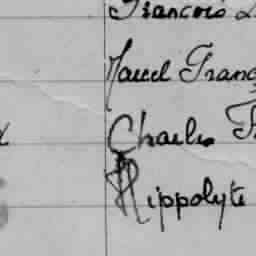 François
Marcel Franç
Charles
Hippolyte